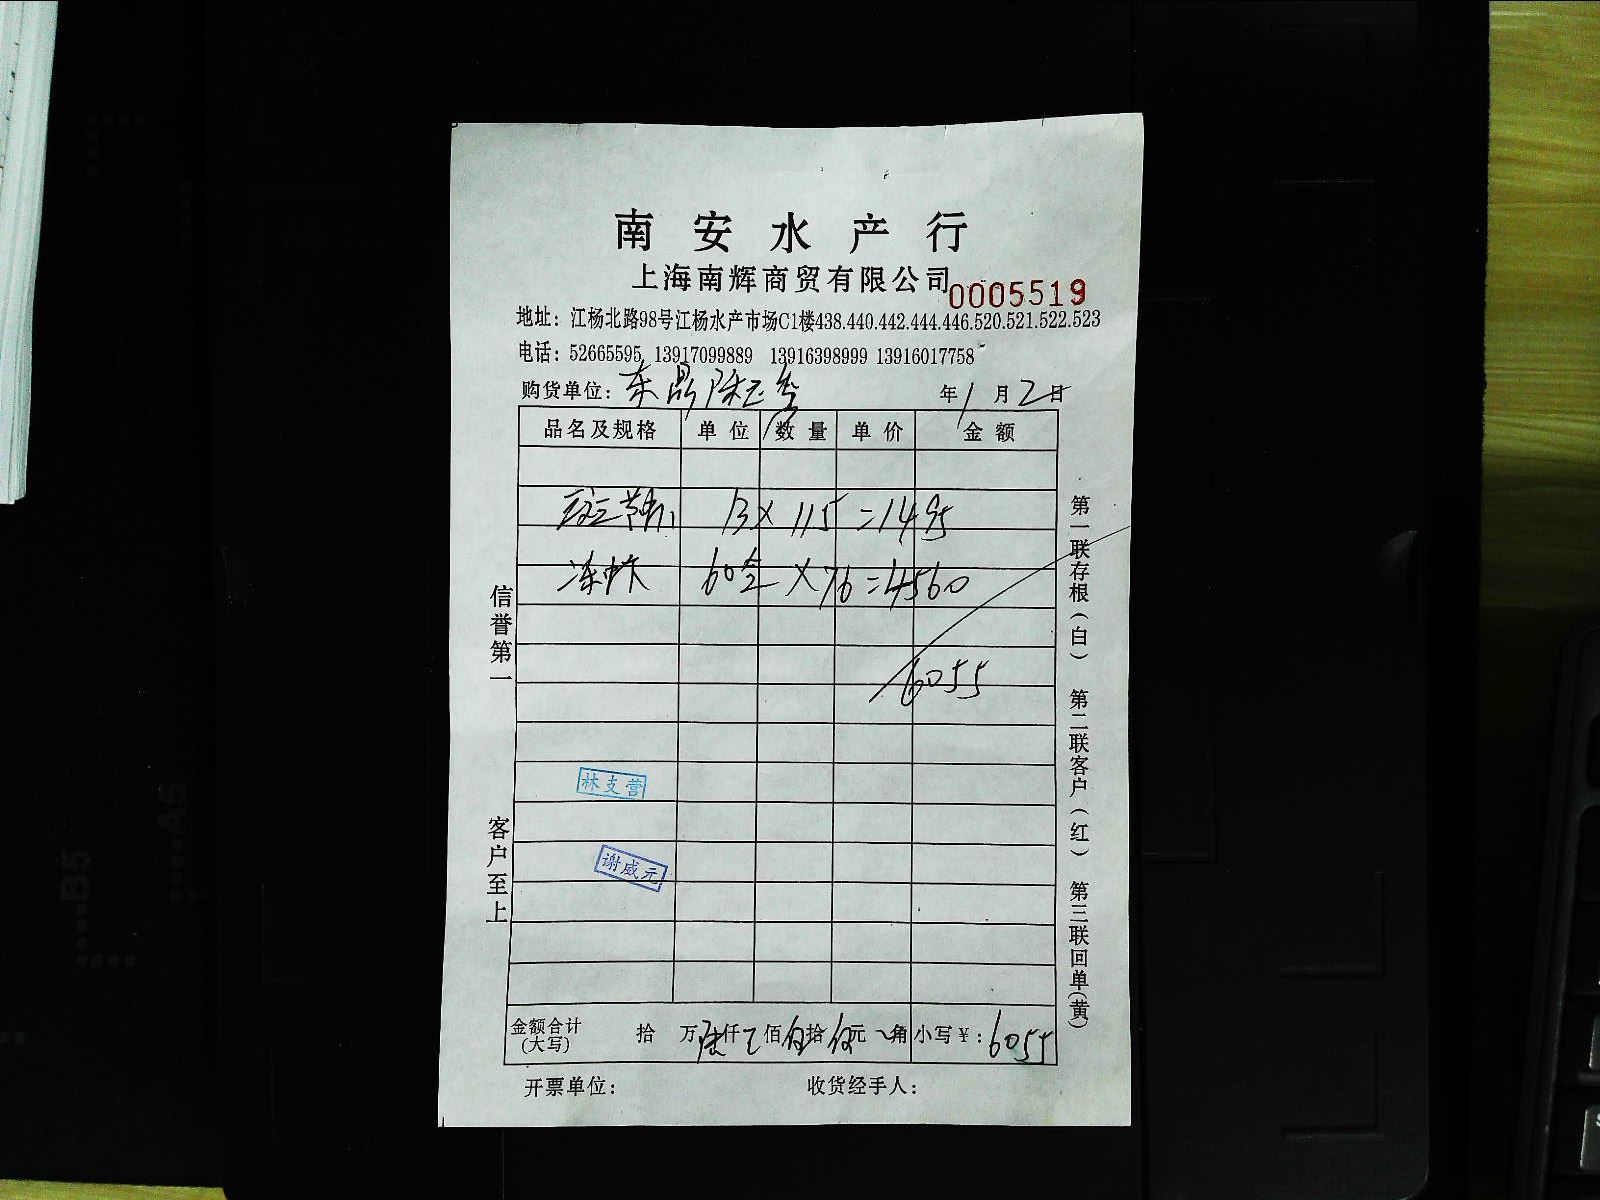 南安水产行
上海南辉商贸有限公司
0005519
地址：江杨北路98号江杨水产市场C1楼438.440.442.444.446.520.521.522.523
电话：52665595 13917099889 13916398999 13916017758
购货单位： 东 年1月2日
品名及规格 单位 数量 单价 金额
斑节 13×115=1495
冻 60盒×76=4560
6055
林支营
谢威元
金额合计(大写) 拾 万陆仟 佰伍拾伍元 角 小写￥：6055
开票单位： 收货经手人：
信誉第一 客户至上
第一联存根(白) 第二联客户(红) 第三联回单(黄)